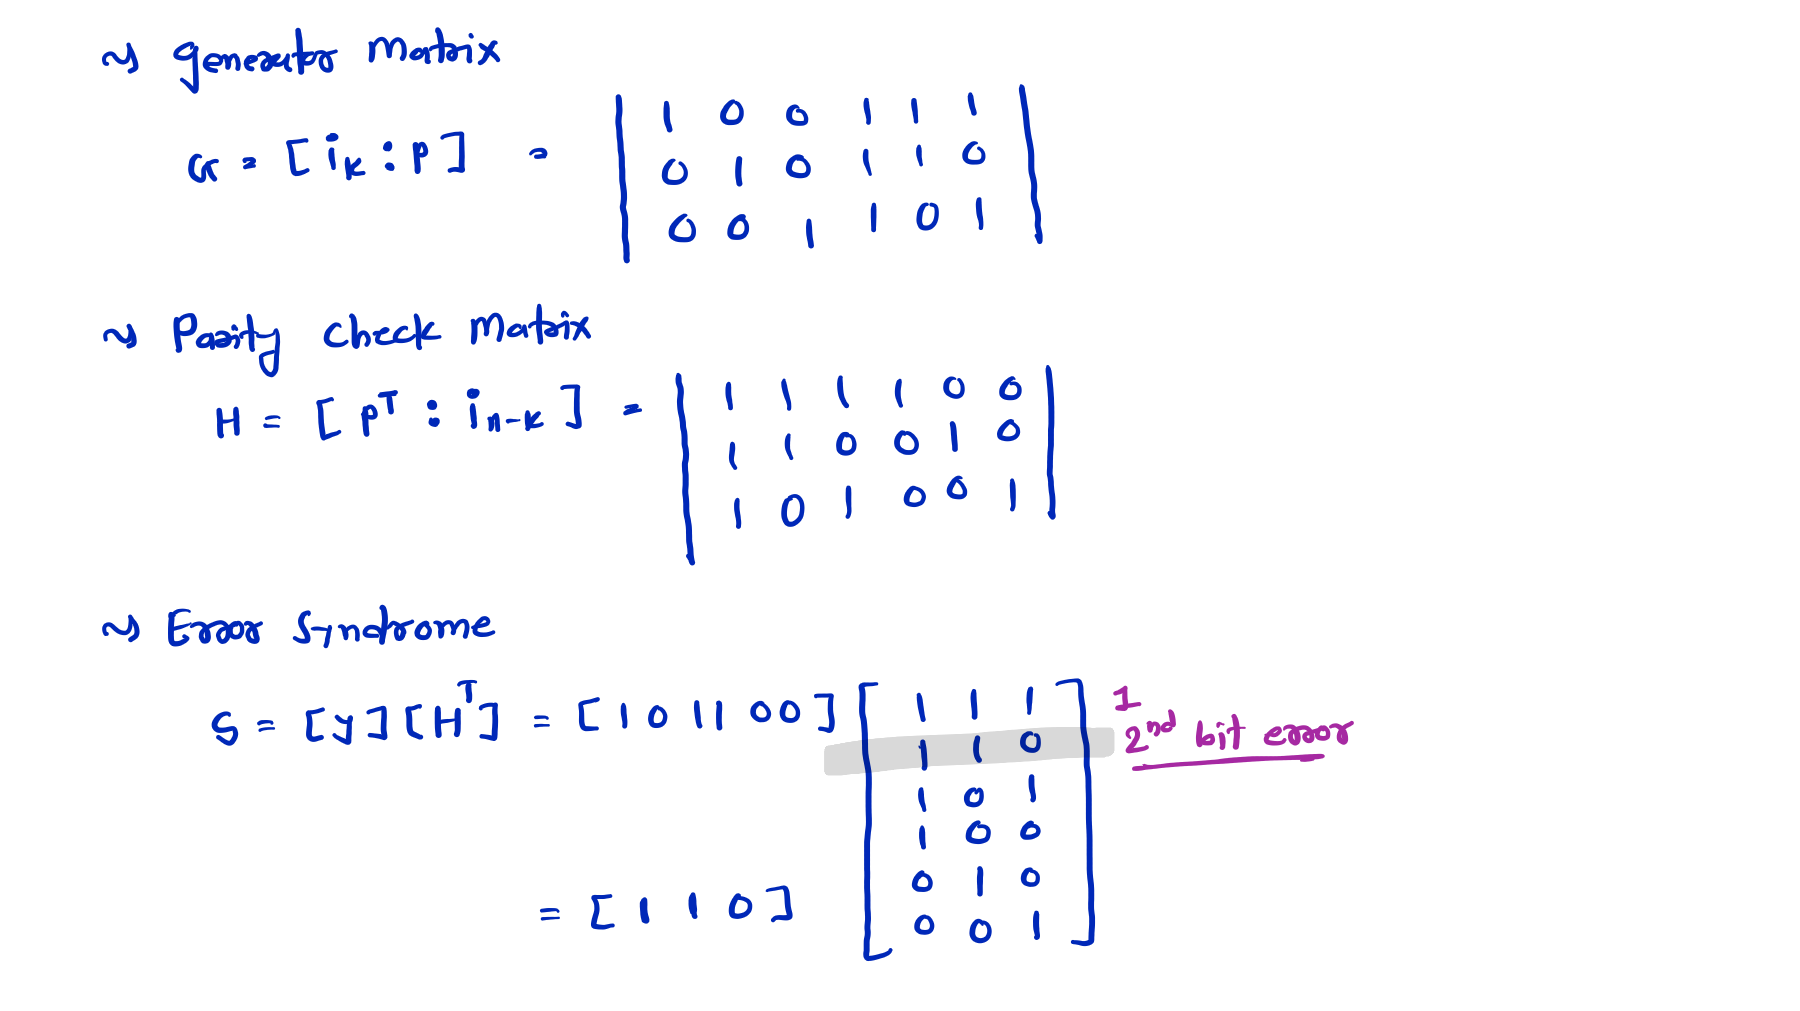 ~ Generator Matrix
G = [ik : p] = | 1 0 0 1 1 1 |
| 0 1 0 1 1 0 |
| 0 0 1 1 0 1 |
~ Parity Check Matrix
H = [pᵀ : iₙ₋ₖ] = | 1 1 1 1 0 0 |
| 1 1 0 0 1 0 |
| 1 0 1 0 0 1 |
~ Error Syndrome
S = [y][Hᵀ] = [1 0 1 1 0 0] [1 1 1] 1
1 1 0 2nd bit error
1 0 1
1 0 0
0 1 0
0 0 1
= [1 1 0]